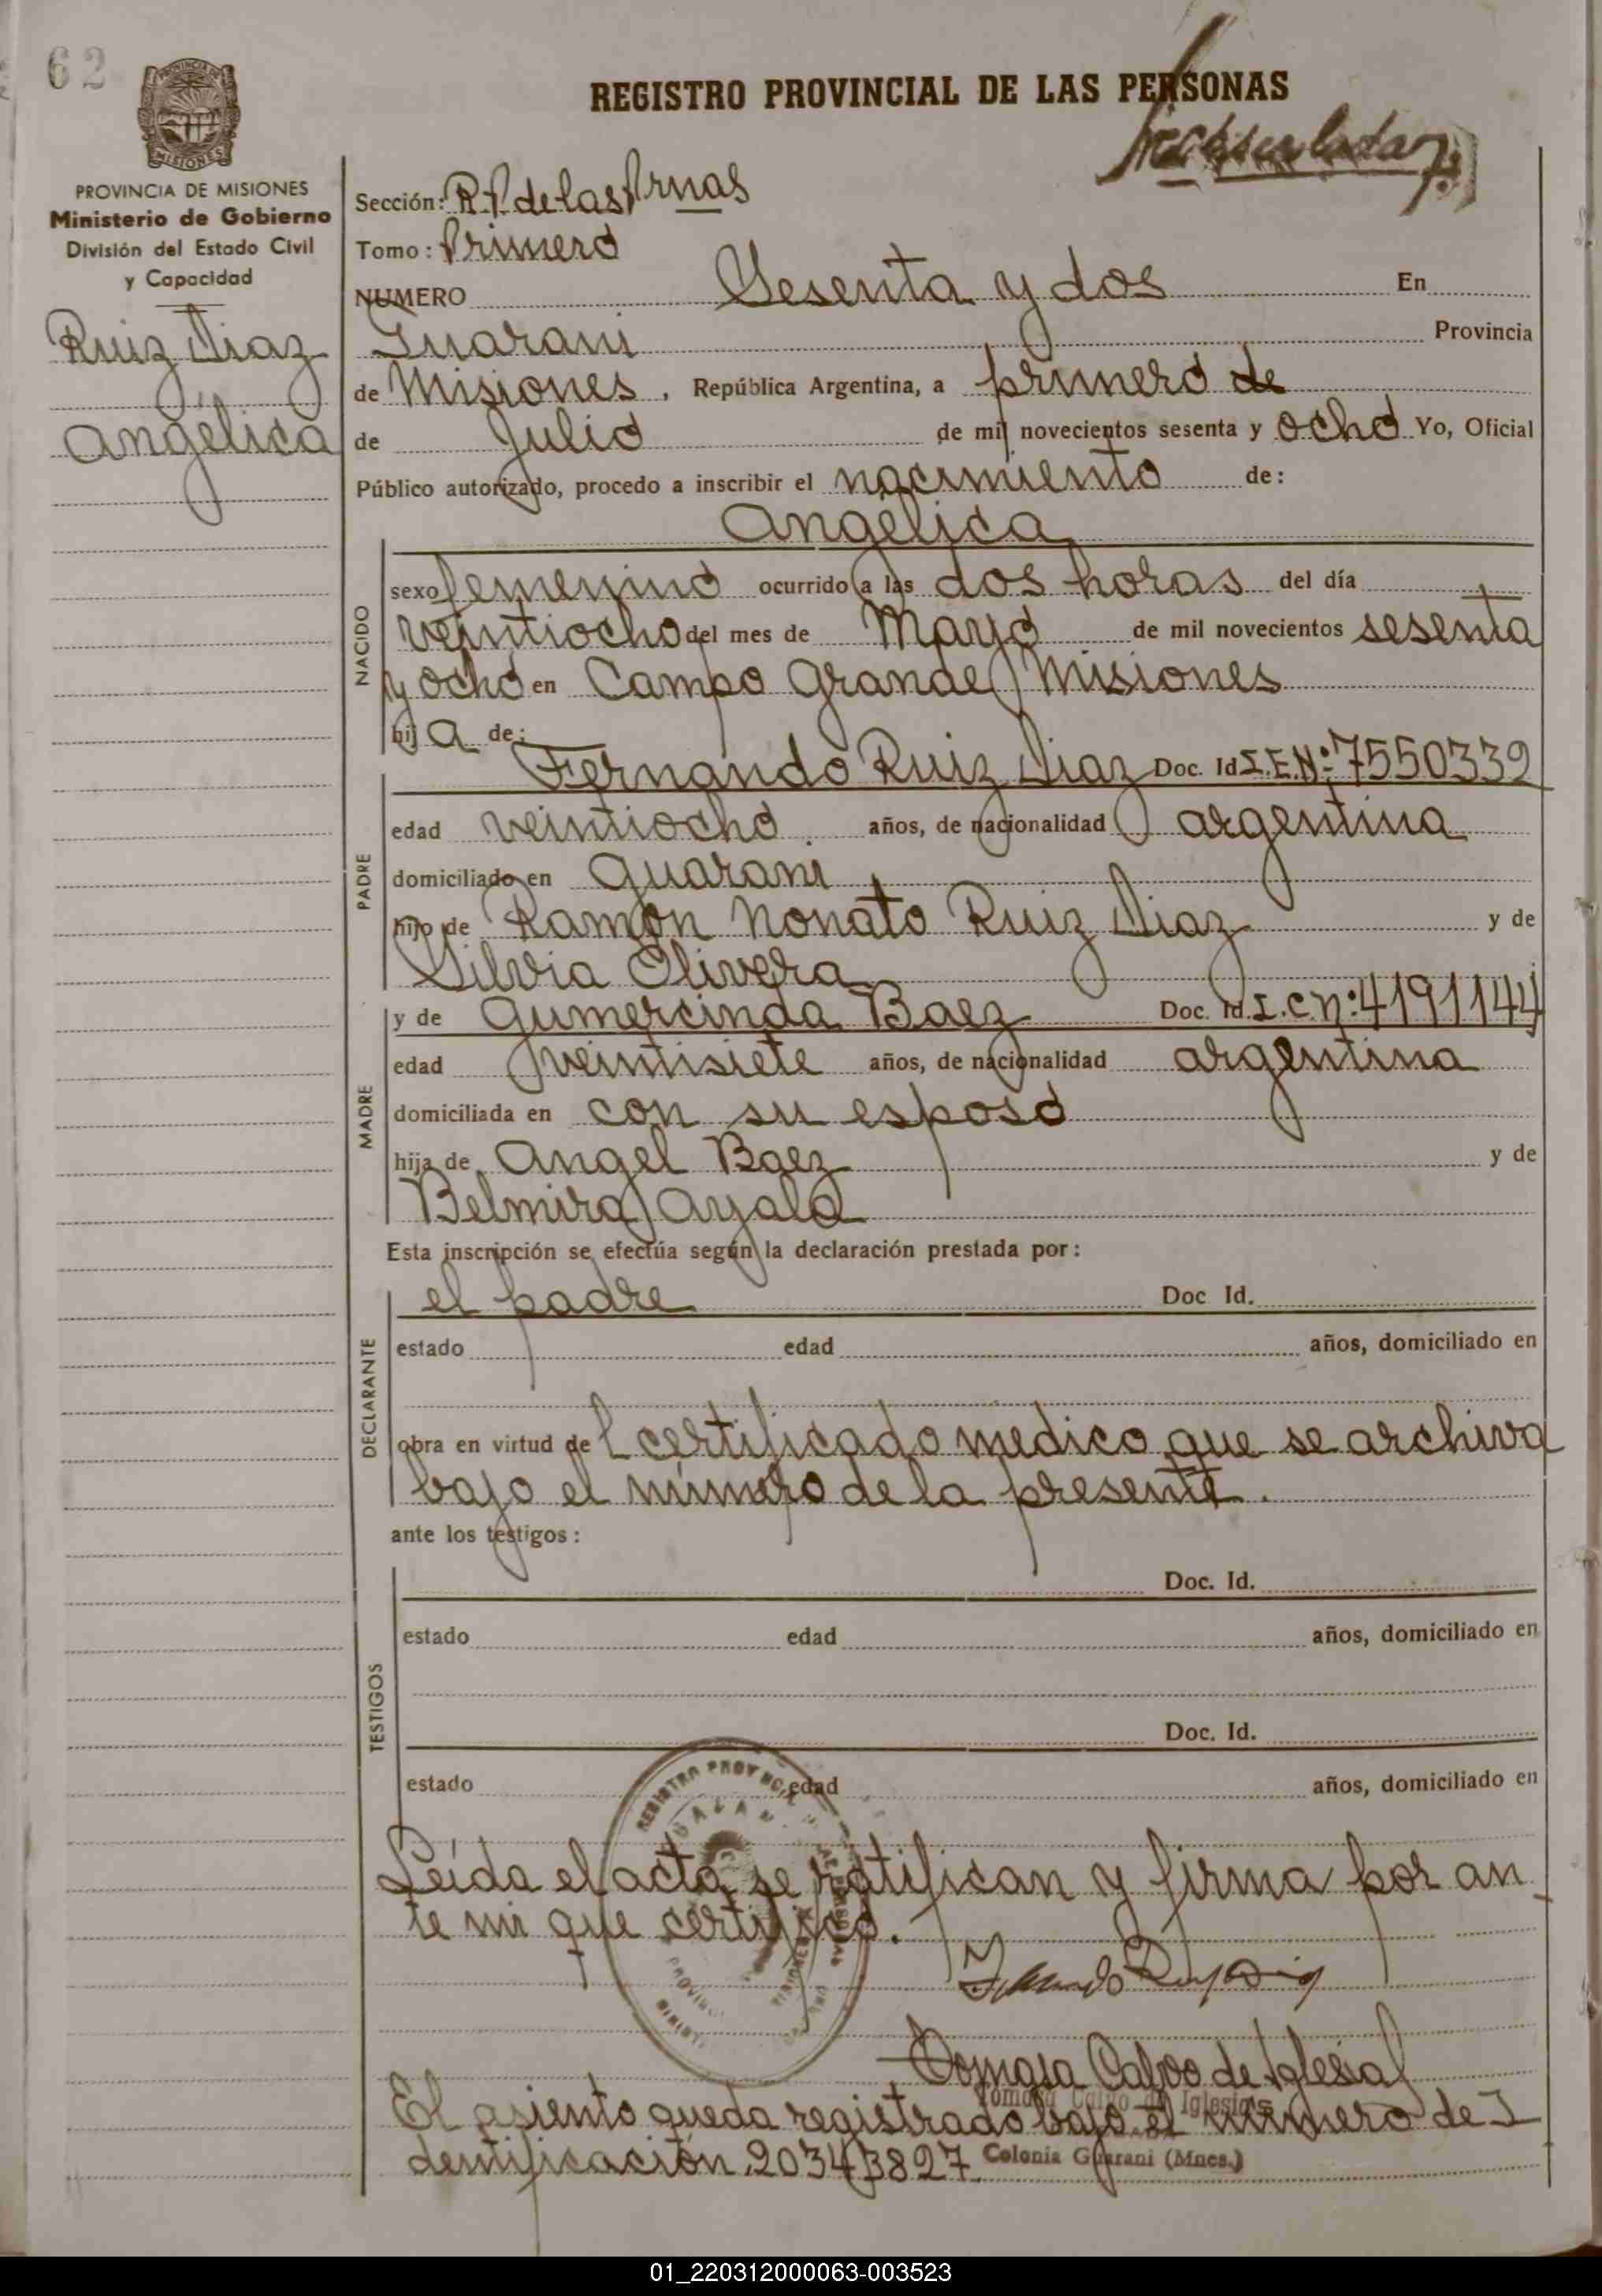 62
REGISTRO PROVINCIAL DE LAS PERSONAS
PROVINCIA DE MISIONES
Ministerio de Gobierno
División del Estado Civil
y Capacidad
Ruiz Diaz
Angélica
Sección: R.P. de las Prnas
Tomo: Primero
NUMERO Sesenta y dos En
Guarani Provincia
de Misiones, República Argentina, a primero de
de Julio de mil novecientos sesenta y ocho Yo, Oficial
Público autorizado, procedo a inscribir el nacimiento de:
Angélica
NACIDO
sexo femenino ocurrido a las dos horas del día
veintiocho del mes de Mayo de mil novecientos sesenta
y ocho en Campo Grande Misiones
hij a de:
PADRE
Fernando Ruiz Diaz Doc. Id I.E.Nº: 7550339
edad veintiocho años, de nacionalidad argentina
domiciliado en Guarani
hijo de Ramón Nonato Ruiz Diaz y de
Silvia Olivera
MADRE
y de Gumercinda Baez Doc. Id. I.C.Nº: 4191144
edad veintisiete años, de nacionalidad argentina
domiciliada en con su esposo
hija de Angel Baez y de
Belmira Ayala
Esta inscripción se efectúa según la declaración prestada por:
DECLARANTE
el padre Doc Id.
estado edad años, domiciliado en
obra en virtud de l certificado medico que se archiva
bajo el número de la presente.
ante los testigos:
TESTIGOS
Doc. Id.
estado edad años, domiciliado en
Doc. Id.
estado edad años, domiciliado en
Leída el acta se ratifican y firma por an
te mi que certifico.
Tomasa Calvo de Iglesias
Tomasa Calvo de Iglesias
El asiento queda registrado bajo el número de I
dentificación 20343827 Colonia Guarani (Mnes.)
01_220312000063-003523